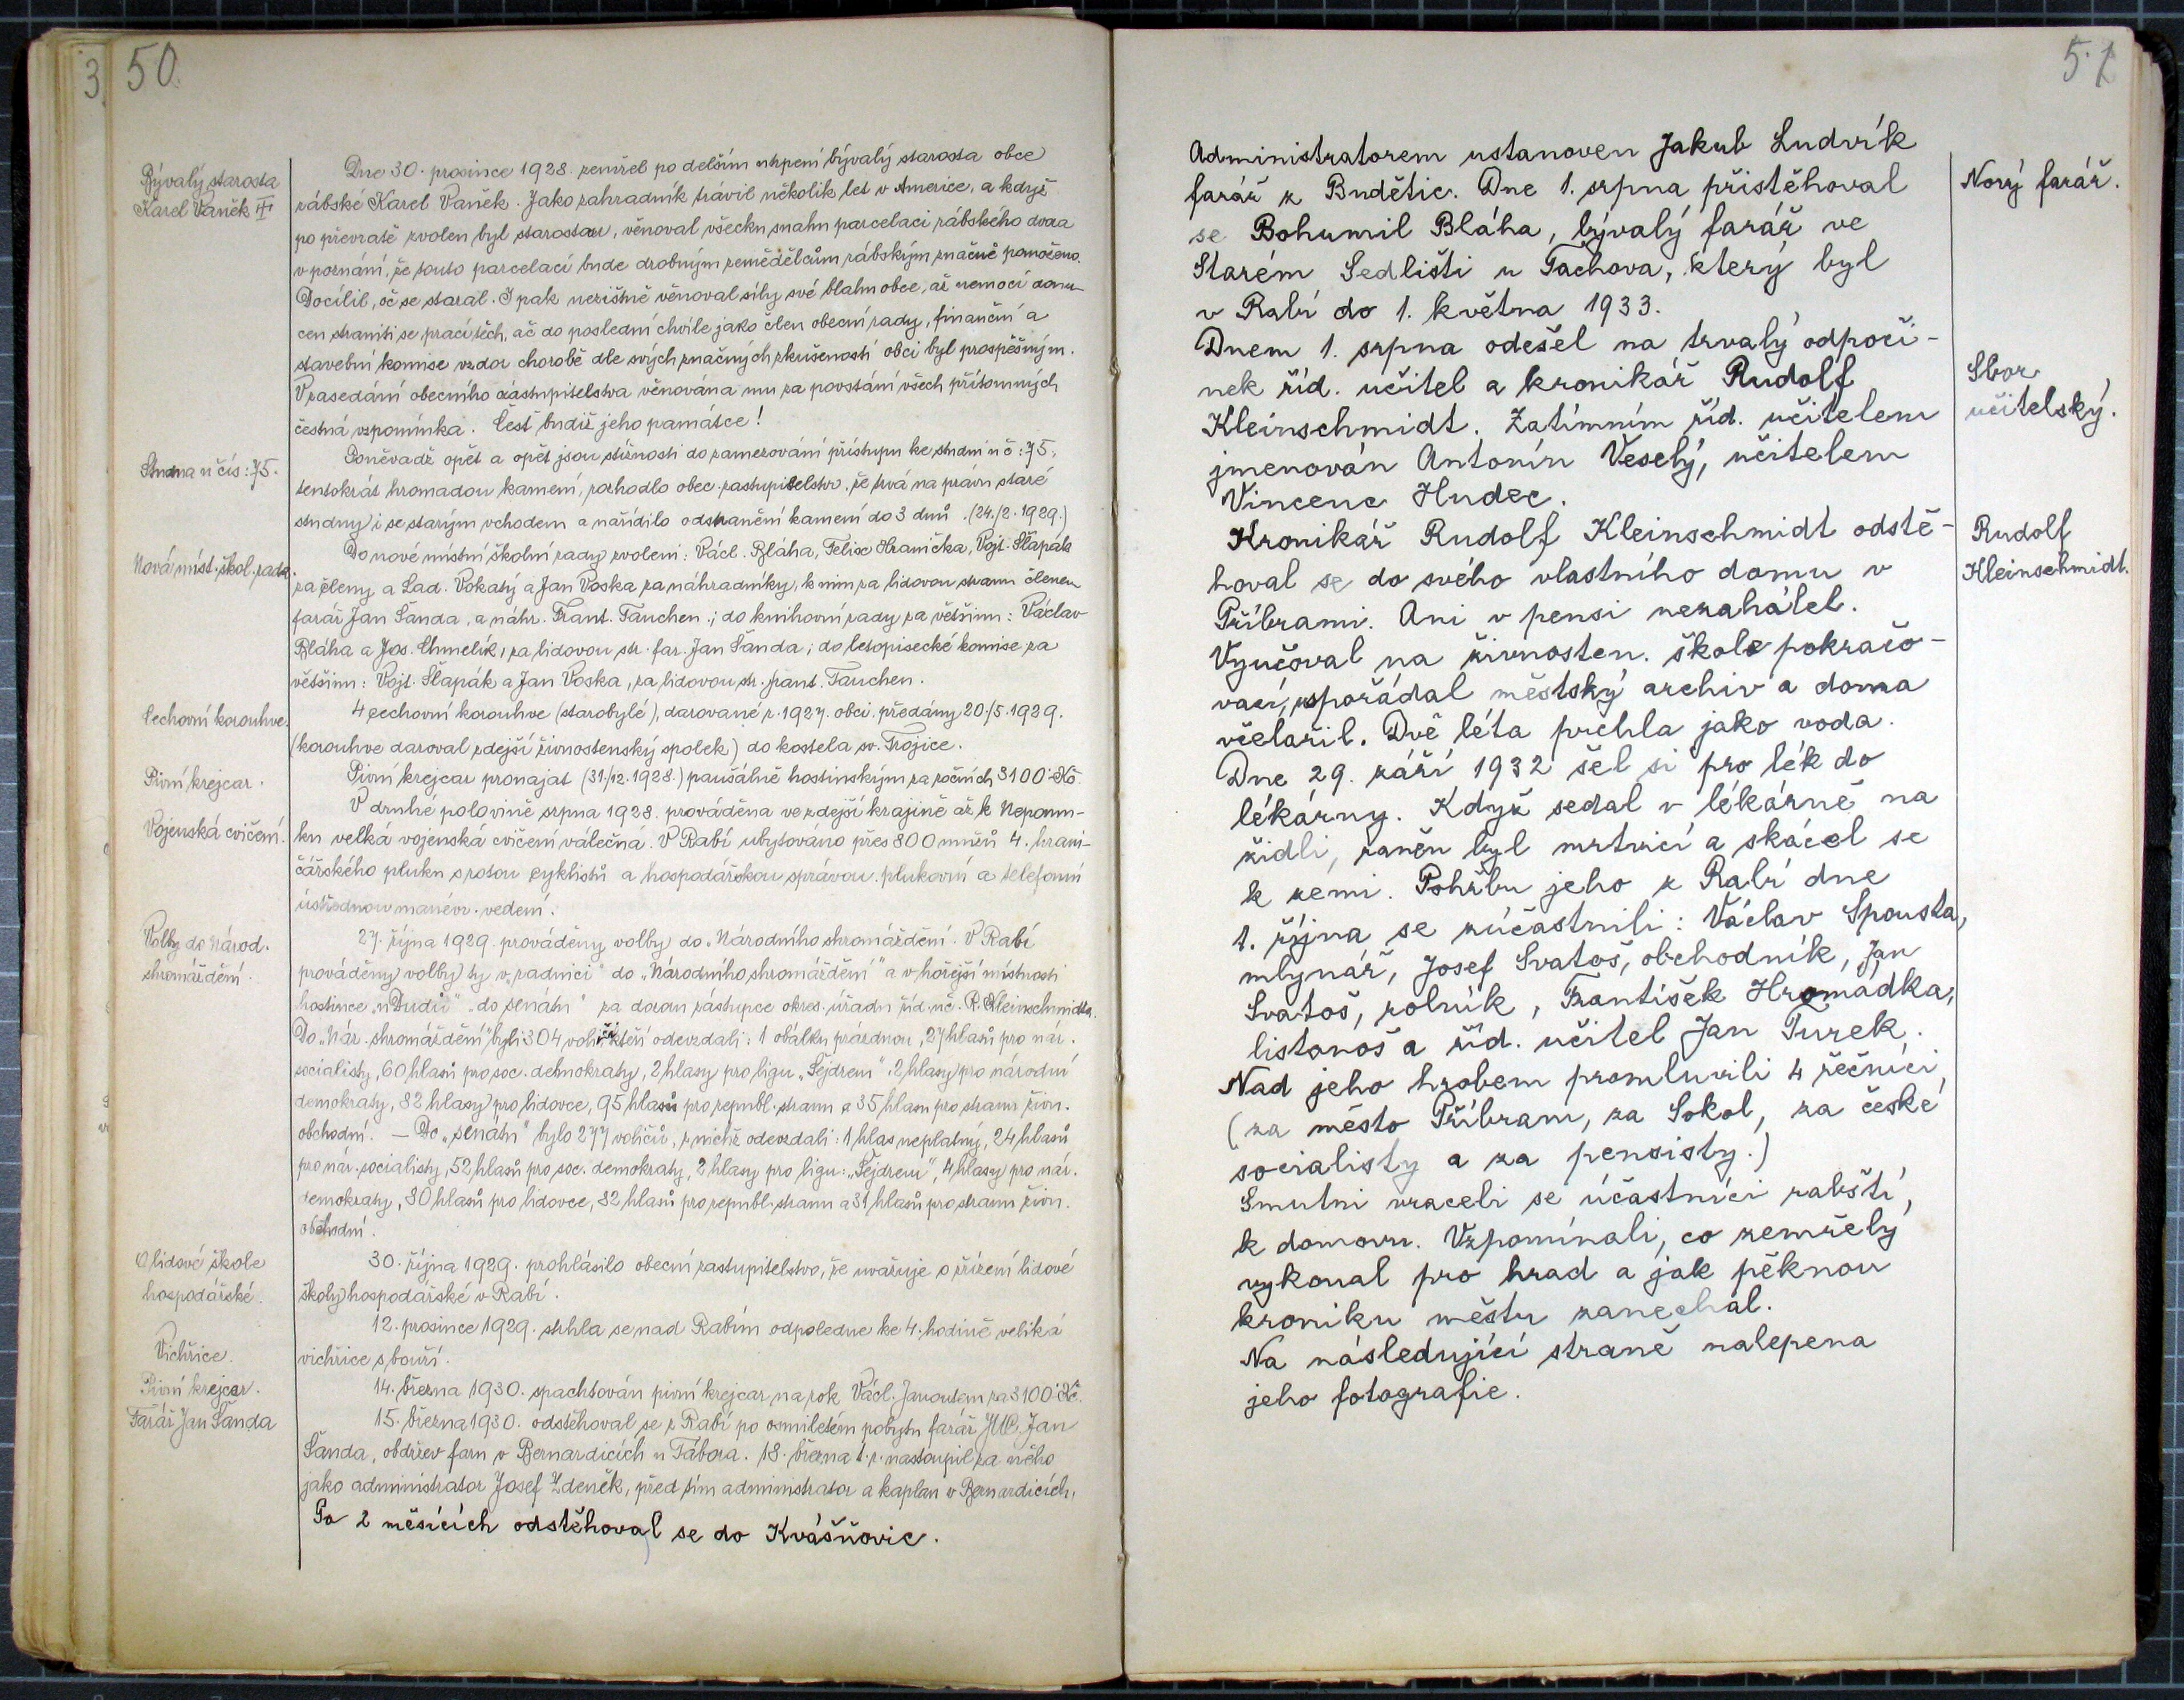 3
50
Bývalý starosta
Karel Vaněk
Dne 30. prosince 1928. zemřel po delším utrpení bývalý starosta obce
rábské Karel Vaněk. Jako zahradník trávil několik let v Americe, a když
po převratě zvolen byl starostou, věnoval všecku snahu parcelaci rábského dvora
v poznání, že touto parcelací bude drobným zemědělcům rábským značně pomoženo.
Docílil, oč se staral. I pak nezištně věnoval síly své blahu obce, až nemocí donu-
cen straniti se prací těch, ač do poslední chvíle jako člen obecní rady, finanční a
stavební komise vzdor chorobě dle svých značných zkušeností obci byl prospěšným.
V zasedání obecního zastupitelstva věnována mu za povstání všech přítomných
čestná vzpomínka. Čest budiž jeho památce!
Studna u čís: 75.
Poněvadž opět a opět jsou stížnosti do zamezování přístupu ke studni u č: 75,
tentokrát hromadou kamení, rozhodlo obec. zastupitelstvo, že trvá na právu staré
studny i se starým vchodem a nařídilo odstranění kamení do 3 dnů. (24./2. 1929.)
Nová míst. škol. rada.
Do nové místní školní rady zvoleni: Václ. Bláha, Felix Hranička, Vojt. Šlapák
za členy a Lad. Vokatý a Jan Voska za náhradníky, k nim za lidovou stranu členem
farář Jan Šanda, a náhr. Frant. Tauchen.; do knihovní rady za většinu: Václav
Bláha a Jos. Chmelík, za lidovou str. far. Jan Šanda; do letopisecké komise za
většinu: Vojt. Šlapák a Jan Voska, za lidovou str. frant. Tauchen.
Cechovní korouhve.
4 cechovní korouhve (starobylé), darované r. 1927. obci, předány 20./5. 1929.
(korouhve daroval zdejší živnostenský spolek) do kostela sv. Trojice.
Pivní krejcar.
Pivní krejcar pronajat (31./12. 1928.) paušálně hostinským za ročních 3100 Kč.
Vojenská cvičení.
V druhé polovině srpna 1928. prováděna ve zdejší krajině až k Nepomu-
ku velká vojenská cvičení válečná. V Rabí ubytováno přes 800 mužů 4. hrani-
čářského pluku s rotou cyklistů a hospodářskou správou. plukovní a telefonní
ústřednou manévr. vedení.
Volby do národ.
shromáždění.
27. října 1929. prováděny volby do „Národního shromáždění. V Rabí
prováděny volby ty v „radnici" do „Národního shromáždění" a v hořejší místnosti
hostince „u Dudů" „do senátu" za dozoru zástupce okres. úřadu říd. uč. R. Kleinschmidta.
Do „Nár. shromáždění" byli 304 voliči kteří odevzdali: 1 obálku prázdnou, 27 hlasů pro nár.
socialisty, 60 hlasů pro soc. demokraty, 2 hlasy pro ligu „Šejdrem". 2 hlasy pro národní
demokraty, 82 hlasy pro lidovce, 95 hlasů pro republ. stranu a 35 hlasů pro stranu živn.
obchodní. – Do „senátu" bylo 277 voličů, z nichž odevzdali: 1 hlas neplatný, 24 hlasů
pro nár. socialisty, 52 hlasů pro soc. demokraty, 2 hlasy pro ligu: „Šejdrem", 4 hlasy pro nár.
demokraty, 80 hlasů pro lidovce, 82 hlasů pro republ. stranu a 31 hlasů pro stranu živn.
obchodní.
O lidové škole
hospodářské.
30. října 1929. prohlásilo obecní zastupitelstvo, že uvažuje o zřízení lidové
školy hospodářské v Rabí.
Vichřice.
12. prosince 1929. strhla se nad Rabím odpoledne ke 4. hodině veliká
vichřice s bouří.
Pivní krejcar.
14. března 1930. spachtován pivní krejcar na rok Václ. Janoutem za 3100 Kč.
Farář Jan Šanda
15. března 1930. odstěhoval se z Rabí po osmiletém pobytu farář Jan
Šanda, obdržev faru v Bernardicích u Tábora. 18. března t. r. nastoupil za něho
jako administrátor Josef Zdeněk, před tím administrator a kaplan v Bernardicích.
Po 2 měsících odstěhoval se do Kvášňovic.
51
Administratorem ustanoven Jakub Ludvík
farář z Budětic. Dne 1. srpna přistěhoval
se Bohumil Bláha, bývalý farář ve
Starém Sedlišti u Tachova, který byl
v Rabí do 1. května 1933.
Nový farář.
Dnem 1. srpna odešel na trvalý odpoči-
nek říd. učitel a kronikář Rudolf
Kleinschmidt. Zatímním říd. učitelem
jmenován Antonín Veselý, učitelem
Vincenc Hudec.
Sbor
učitelský.
Kronikář Rudolf Kleinschmidt odstě-
hoval se do svého vlastního domu v
Příbrami. Ani v pensi nezahálel.
Vyučoval na živnosten. škole pokračo-
vací, uspořádal městský archiv a doma
včelařil. Dvě léta prchla jako voda.
Dne 29. září 1932 šel si pro lék do
lékárny. Když sedal v lékárně na
židli, raněn byl mrtvicí a skácel se
k zemi. Pohřbu jeho z Rabí dne
1. října se zúčastnili: Václav Spousta,
mlynář, Josef Svatoš, obchodník, Jan
Svatoš, rolník, František Hromádka,
listonoš a říd. učitel Jan Turek.
Nad jeho hrobem promluvili 4 řečníci
(za město Příbram, za Sokol, za české
socialisty a za pensisty.)
Smutni vraceli se účastníci rabští,
k domovu. Vzpomínali, co zemřelý
vykonal pro hrad a jak pěknou
kroniku městu zanechal.
Na následující straně nalepena
jeho fotografie.
Rudolf
Kleinschmidt.